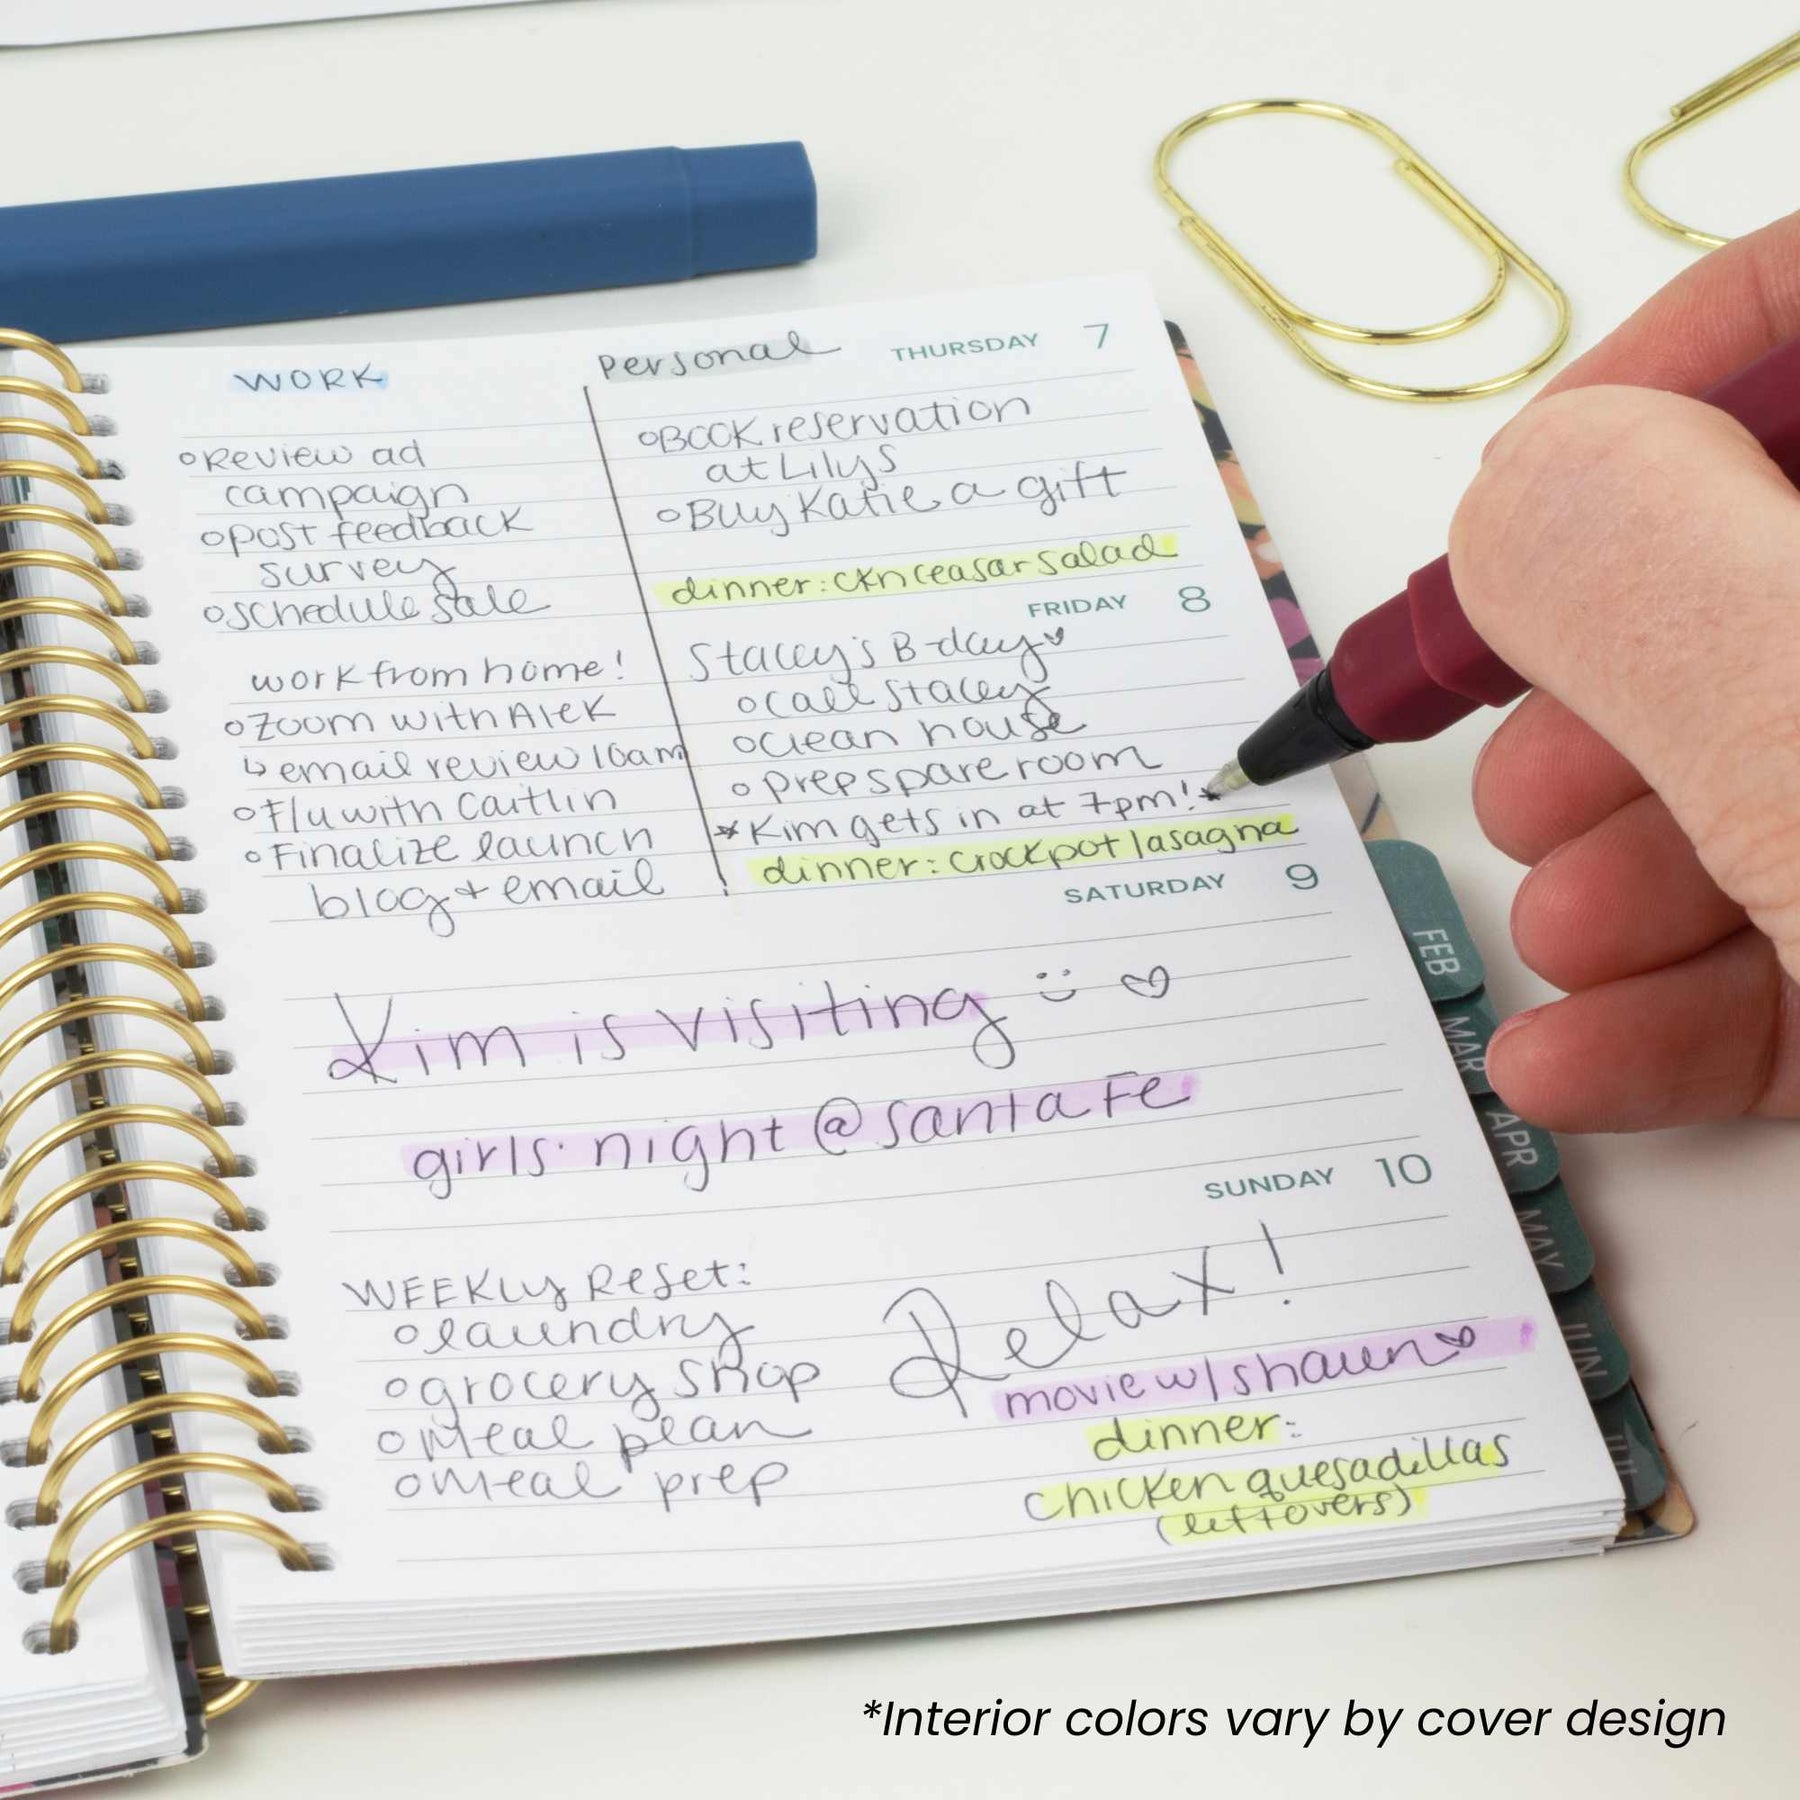 WORK
Personal
THURSDAY 7
Review ad
campaign
post feedback
survey
schedule sale
Book reservation
at Lilys
Buy Katie a gift
dinner: ckn ceasar salad
FRIDAY 8
work from home!
Zoom with Alek
↳ email review 10am
F/u with Caitlin
Finalize launch
blog + email
Stacey's B-day
call Stacey
clean house
prep spare room
*Kim gets in at 7pm!*
dinner: crockpot lasagna
SATURDAY 9
Kim is visiting :)
girls night @ Santa Fe
SUNDAY 10
WEEKLY Reset:
laundry
grocery shop
Meal plan
Meal prep
Relax!
movie w/ shaun
dinner:
chicken quesadillas
(leftovers)
FEB
MAR
APR
MAY
JUN
JUL
*Interior colors vary by cover design